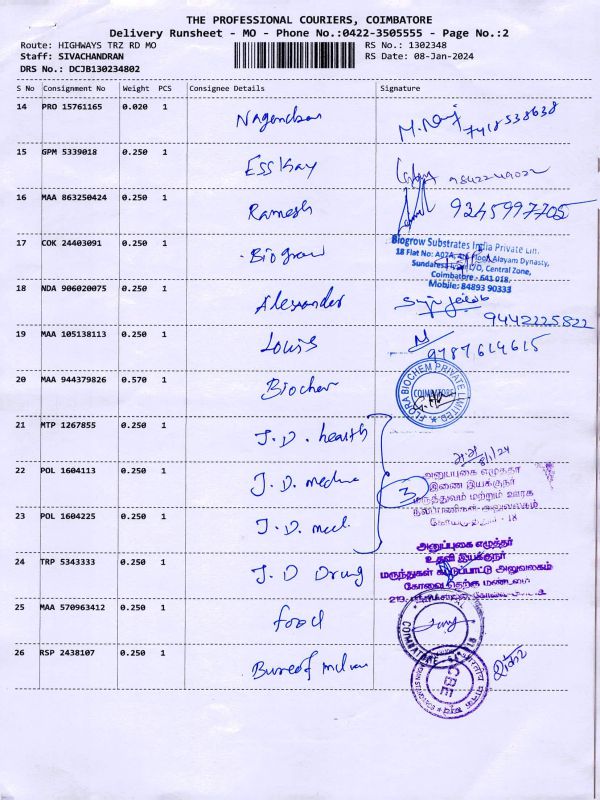 THE PROFESSIONAL COURIERS, COIMBATORE
Delivery Runsheet - MO - Phone No.:0422-3505555 - Page No.:2
Route: HIGHWAYS TRZ RD MO RS No.: 1302348
Staff: SIVACHANDRAN RS Date: 08-Jan-2024
DRS No.: DCJB130234802
S No Consignment No Weight PCS Consignee Details Signature
14 PRO 15761165 0.020 1 7418538638
15 GPM 5339018 0.250 1 ESS Kay
16 MAA 863250424 0.250 1 Ramesh 9245997705
17 COK 24403091 0.250 1 Biogrow
Biogrow Substrates India Private Lim.
Coimbatore - 641 018.
Mobile: 84893 90333
18 NDA 906020075 0.250 1 Alexander 9442225822
19 MAA 105138113 0.250 1 Louis 9787614615
20 MAA 944379826 0.570 1 Biochem
FLORA BIOCHEM PRIVATE LIMITED
COIMBATORE
21 MTP 1267855 0.250 1 J.D. health
8/1/24
22 POL 1604113 0.250 1 J.D.
3
அனுப்புகை எழுத்தர்
இணை இயக்குநர்
மருத்துவம் மற்றும் ஊரக
நலப்பணிகள் அலுவலகம்
23 POL 1604225 0.250 1 J.D.
24 TRP 5343333 0.250 1 J.D Drug
அனுப்புகை எழுத்தர்
உதவி இயக்குநர்
மருந்துகள் கட்டுப்பாட்டு அலுவலகம்
25 MAA 570963412 0.250 1 food
COIMBATORE
26 RSP 2438107 0.250 1
CBE